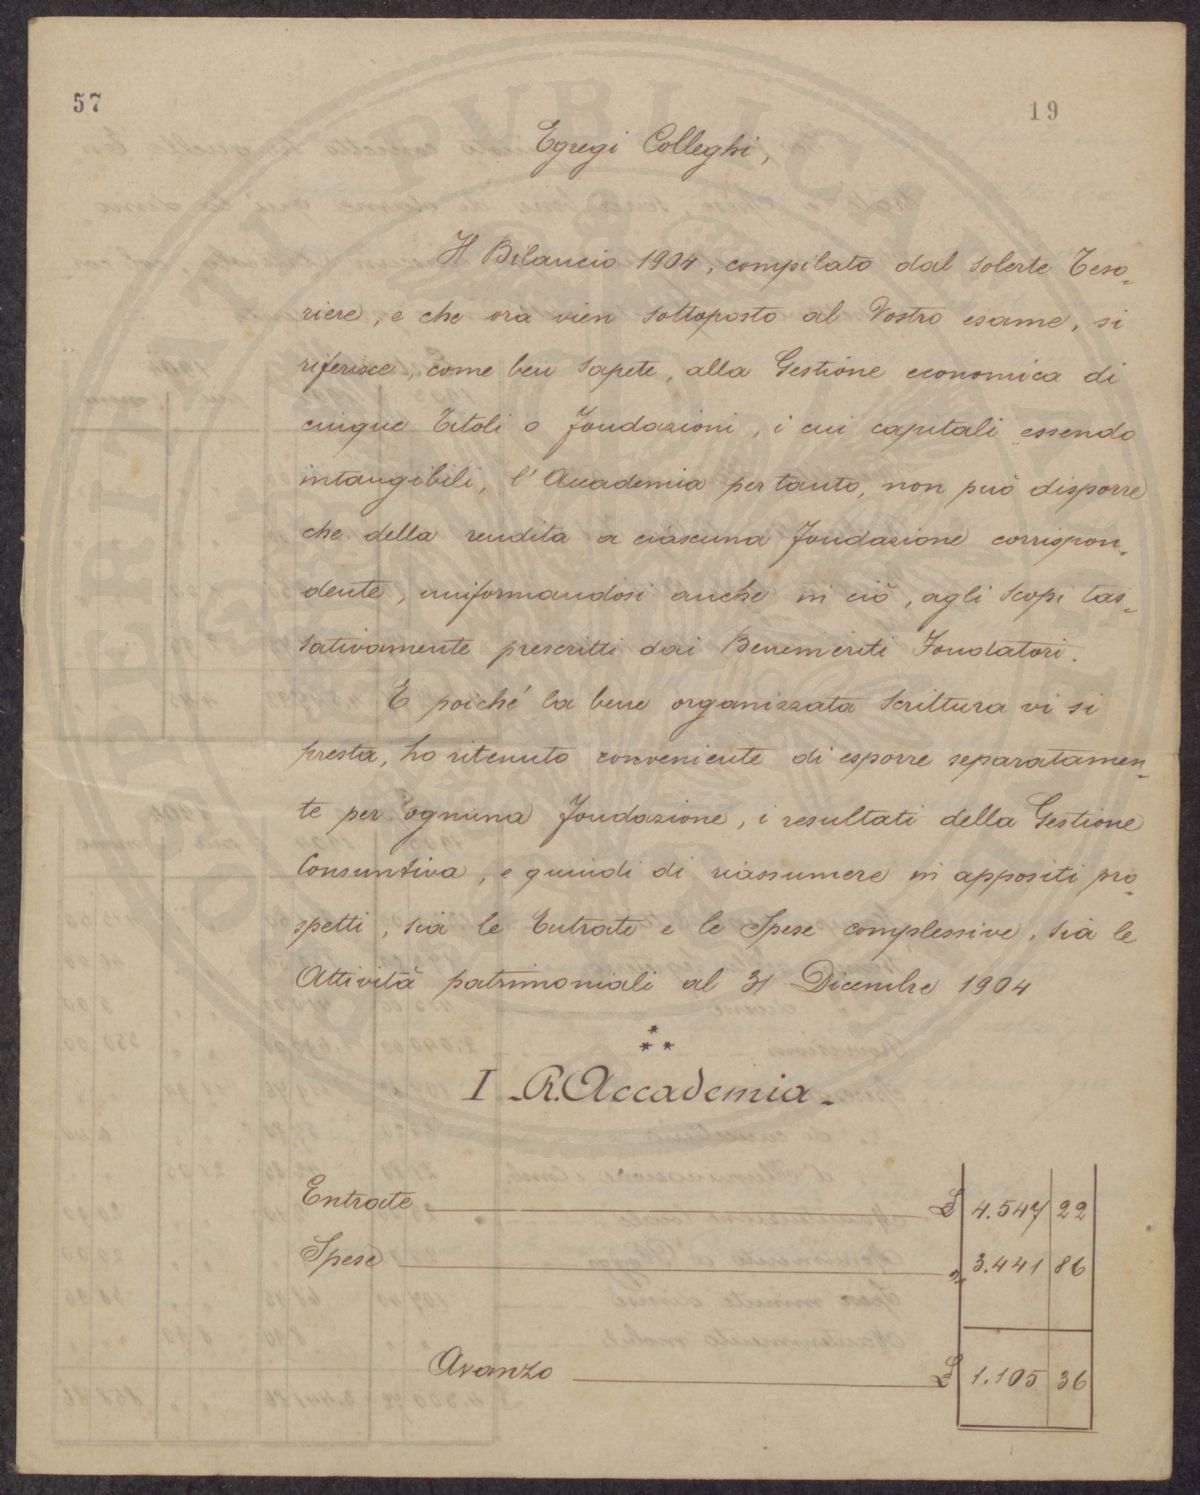 57
19
Egregi Colleghi,
Il Bilancio 1904, compilato dal solerte Teso-
riere, e che ora vien sottoposto al Vostro esame, si
riferisce, come ben sapete, alla Gestione economica di
cinque Titoli o Fondazioni, i cui capitali essendo
intangibili, l'Accademia per tanto, non può disporre
che della rendita a ciascuna Fondazione corrispon-
dente, uniformandosi anche in ciò, agli scopi tas-
sativamente prescritti dai Benemeriti Fondatori.
E poiché la bene organizzata scrittura vi si
presta, ho ritenuto conveniente di esporre separatamen-
te per ognuna Fondazione, i resultati della Gestione
Consuntiva, e quindi di riassumere in appositi pro-
spetti, sia le Entrate e le Spese complessive, sia le
Attività patrimoniali al 31 Dicembre 1904
I - R. Accademia -
Entrate £ 4.547 22
Spese " 3.441 86
Avanzo £ 1.105 36